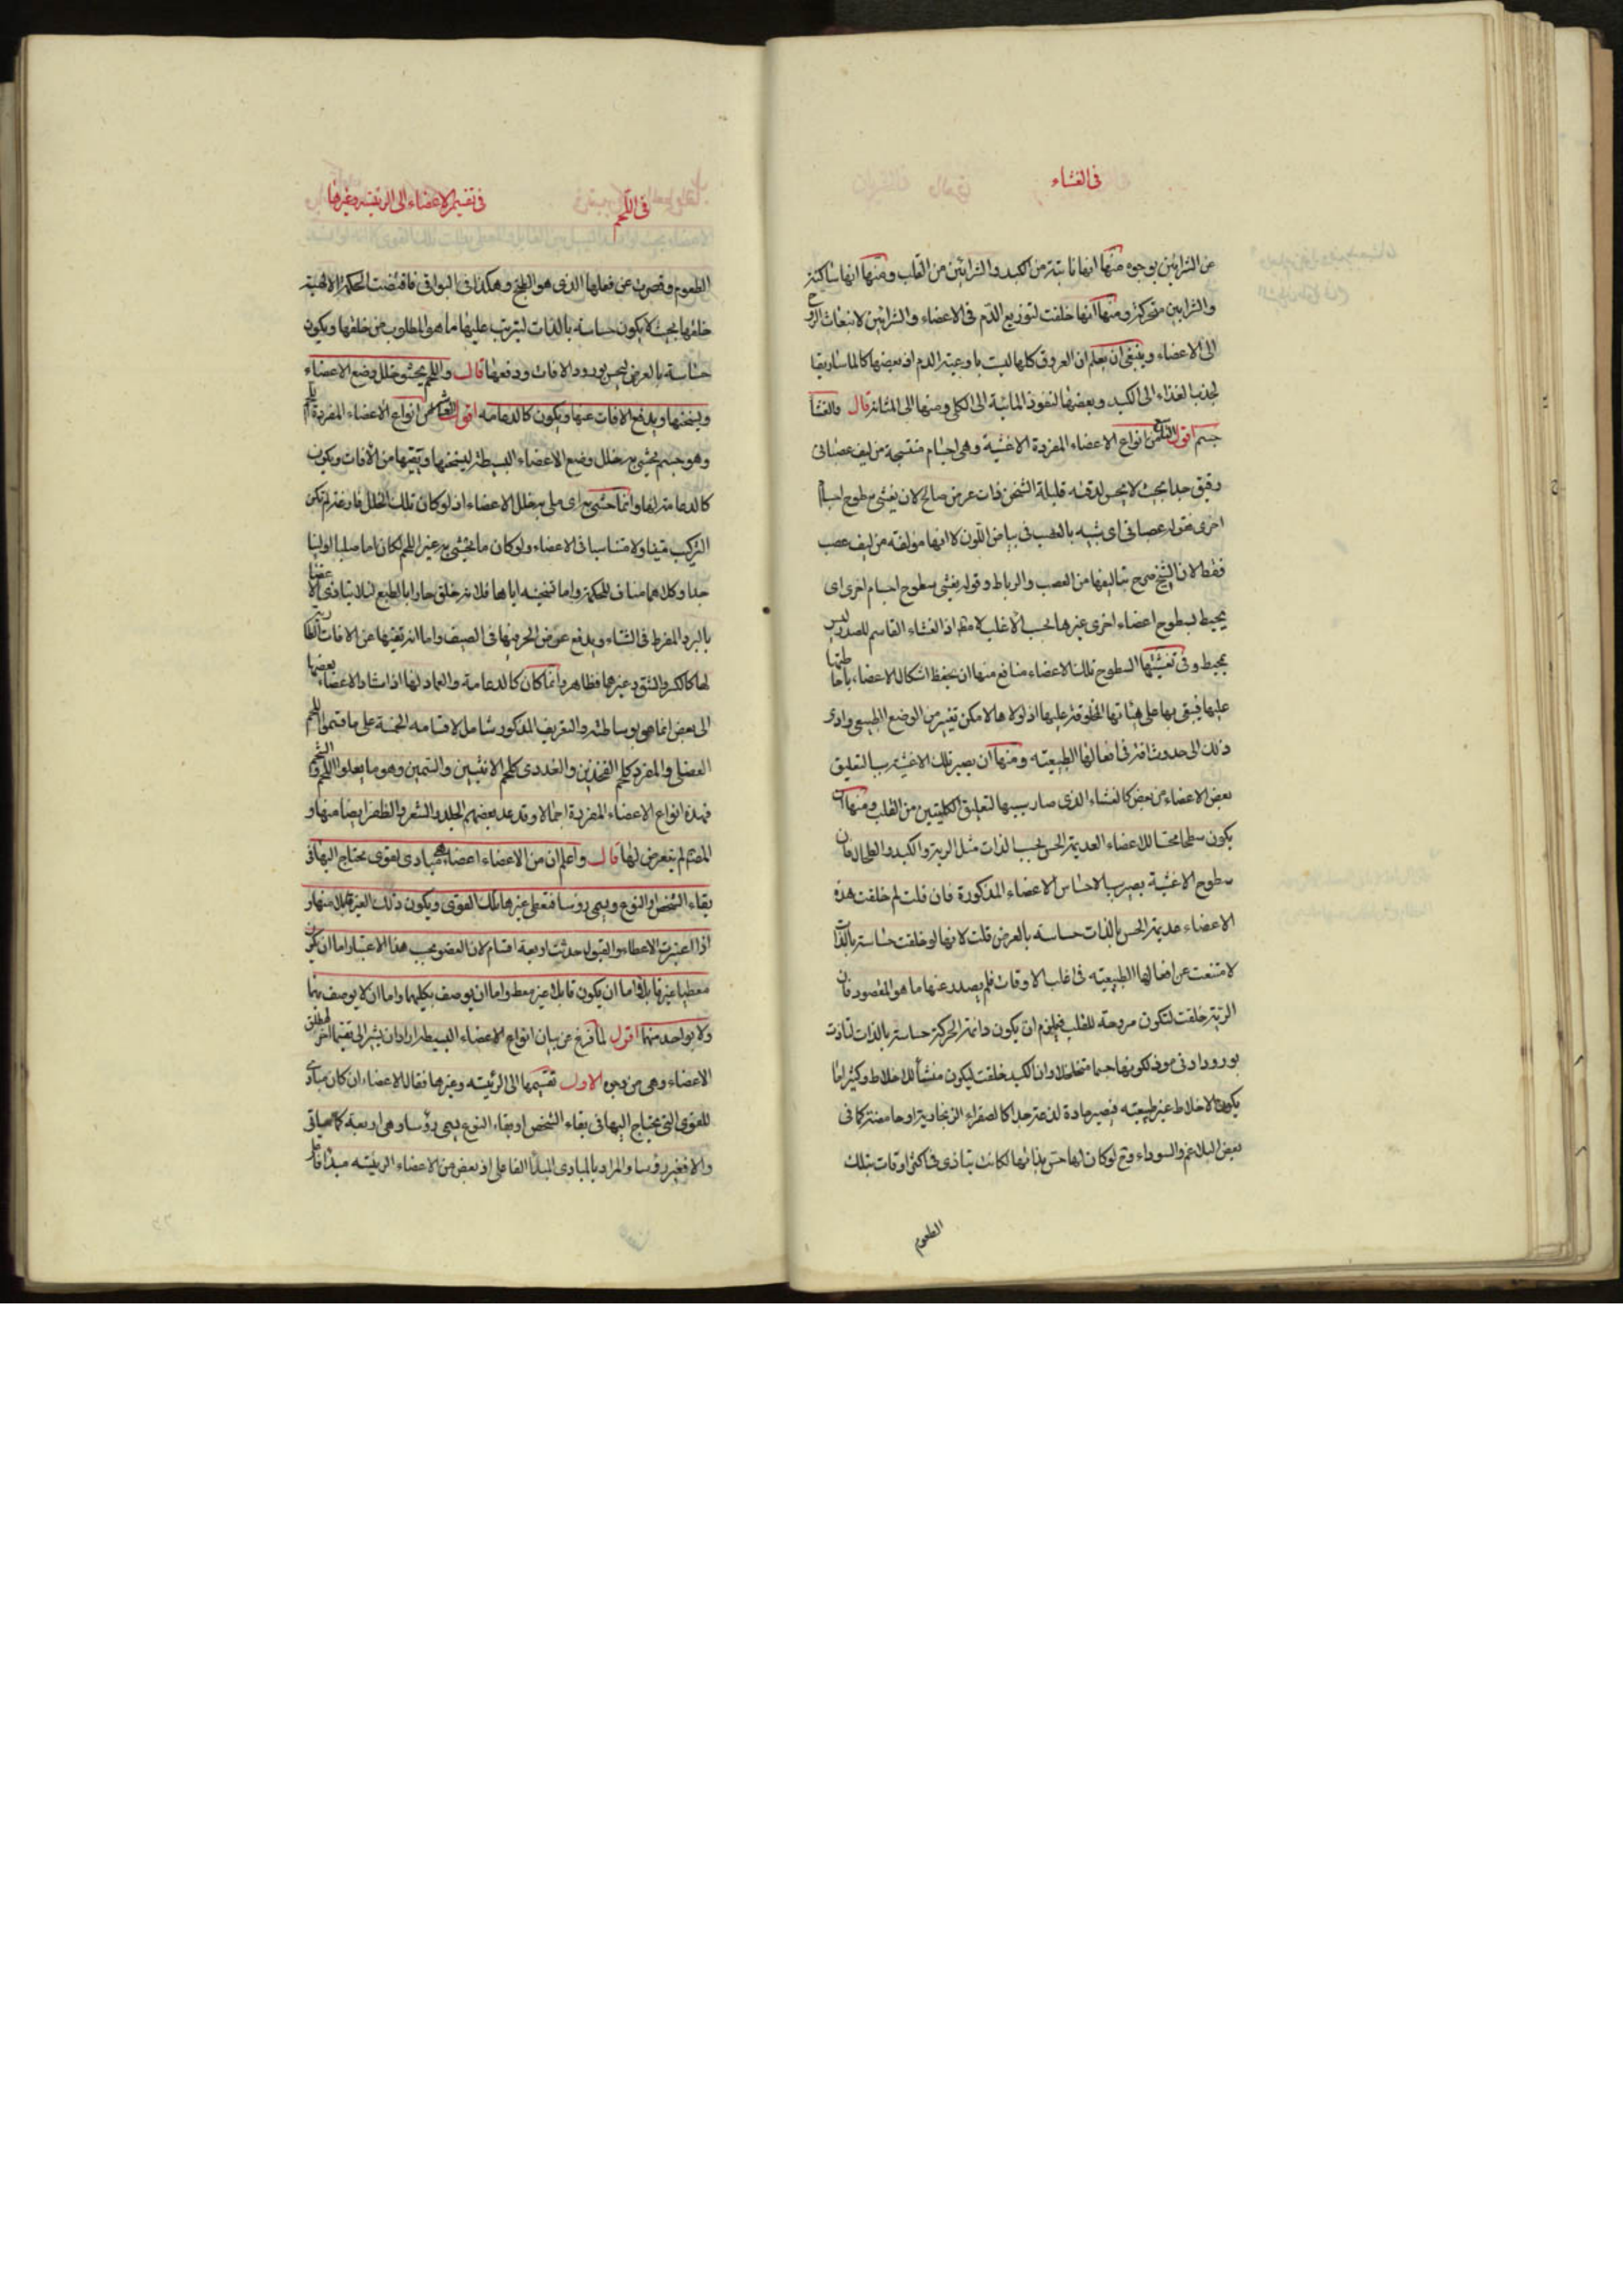 فى الغشاء
عن الشرائين بوجوه منها انها نابتة من الكبد والشرائين من القلب ومنها انها ساكنة
والشرايين متحركة ومنها انها خلقت لتوزيع الدم فى الاعضاء والشرائين لانبعاث الروح
الى الاعضاء وينبغى ان يعلم ان العروق كلها ليست باوعية الدم اذ بعضها كالماساريقا
لجذب الغذاء الى الكبد وبعضها لنفوذ المائية الى الكلى ومنها الى المثانة قال والغشا
جسم اقول من انواع الاعضاء المفردة الاغشية وهى اجسام منتسجة من ليف عصبانى
رقيق جدا بحيث لا يحس لدقته قليلة الثخن ذات عرض صالح لان يغشى سطوح اجسام
اخرى فقوله عصبانى اى شبيه بالعصب فى بياض اللون لا انها مؤلفة من ليف عصب
فقط لان الشيخ صرح بتاليفها من العصب والرباط وقوله يغشى سطوح اجسام اخرى اى
يحيط بسطوح اعضاء اخرى غيرها بحسب الاغلب لا مطلقا اذ الغشاء القاسم للصدر ليس
بمحيط وفى تغشيتها السطوح تلك الاعضاء منافع منها ان يحفظ اشكال الاعضاء باحاطتها
عليها فيبقى بها على هيئاتها المخلوقة عليها اذ لولاها لامكن تغيير من الوضع الطبيعى وادى
ذلك الى حدوث افة فى افعالها الطبيعته ومنها ان يصير تلك الاغشية سببا لتعليق
بعض الاعضاء من بعض كالغشاء الذى صار سببها لتعليق الكليتين من الصلب ومنها ان
يكون سطحا محسا للاعضاء العديمة الحس بحسب الذات مثل الرية والكبد والطحال فان
سطوح الاغشية يصير سببا لاحساس الاعضاء المذكورة فان قلت لم خلقت هذه
الاعضاء عديمة الحس بالذات حساسة بالعرض قلت لانها لو خلقت حساسة بالذات
لامتنعت عن افعالها الطبيعيه فى اغلب الاوقات فلم يصدر عنها ما هو المقصود فان
الرية خلقت لتكون مروحة للقلب فيلزم ان يكون دائمة الحركة حساسة بالذات لتاذت
بورود ادنى موذ لكونها جسما متخلخلا وان الكبد خلقت ليكون منشأ للاخلاط وكثيرا ما
يكون الاخلاط غير طبيعته فيصير مادة لذعة جدا كالصفراء الزنجارية او حامضة كما فى
بعض البلاغم والسوداء وح لو كان لها حس بذاتها لكانت يتاذى فى اكثر اوقات بتلك
الطعوم
فى اللحم
فى تقسيم الاعضاء الى الرئيسة وغيرها
الطعوم وقصرت عن فعلها الذى هو الطبخ وهكذا فى البواقى فاقتضت الحكمة الالهية
خلقها بحيث لا يكون حساسة بالذات ليترتب عليها ما هو المطلوب من خلقها ويكون
حساسة بالعرض ليحس بورود الافات ودفعها قال واللحم يحشو خلل وضع الاعضاء
ويسخنها ويدفع الافات عنها ويكون كالدعامه اقول من انواع الاعضاء المفردة اللحم
وهو جسم يحشى به خلل وضع الاعضاء البسيطة ليسخنها ويقيها من الافات ويكون
كالدعامة لها وانما حشى به اى ملى به خلل الاعضاء اذ لو كان تلك الخلل فارغة لم تكن
التركيب متينا ولا متناسبا فى الاعضاء ولو كان ما يحشى به غير اللحم لكان اما صلبا او لينا
جدا وكلاهما مناف للحكمة واما تسخينه اياها فلانه خلق حارا بالطبع لئلا يتاذى الاعضا
بالبرد المفرط فى الشتاء ويدفع عوض الحر منها فى الصيف واما انه تقيها عن الافات
لها كالكسر والشق وغيرها فظاهر وانما كان كالدعامة والعماد لها اذ استناد الاعضاء بعضها
الى بعض انما هى بوساطته والتعريف المذكور شامل لاقسامه الخمسة على ما قسموا اللحم
العضلى والمفرد كلحم الفخذين والغددى كلحم الانثيين والسمين وهو ما يعلوا اللحم والشحم
فهذه انواع الاعضاء المفردة اجمالا وقد عد بعضهم الجلد والشعر والظفر ايضا منها و
المصنف لم يتعرض لها قال واعلم ان من الاعضاء اعضاء هى مبادى لقوى يحتاج اليها فى
بقاء الشخص او النوع ويسمى رؤسا فتعطى غيرها تلك القوى ويكون ذلك الغير قابلا منها و
اذا اعتبرت الاعطاء والقبول حدثت اربعة اقسام لان العضو بحسب هذا الاعتبار اما ان يكون
معطيا غير قابل واما ان يكون قابلا غير معط واما ان يوصف بكليهما واما ان لا يوصف بهما
ولا بواحد منهما اقول لما فرغ من بيان انواع الاعضاء البسيطة اراد ان يشير الى تقسيم اخر لمطلق
الاعضاء وهى من وجوه الاول تقسيمها الى الرئيسه وغيرها فقال الاعضاء ان كان مبادى
للقوى التى يحتاج اليها فى بقاء الشخص او بقاء النوع يسمى رؤسا وهى اربعة كما سياتى
والا فغير رؤسا والمراد بالمبادى المبدأ الفاعلى اذ بعض من الاعضاء الرئيسه مبدأ فاعل